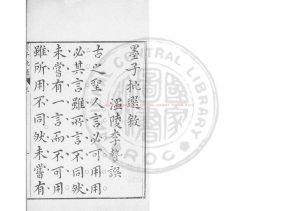 墨子批選敘
溫陵李贄譔
古之聖人言必可用用
必其言雖所言不同然
未嘗有一言而不可用
雖所用不同然未嘗有
CENTRAL LIBRARY